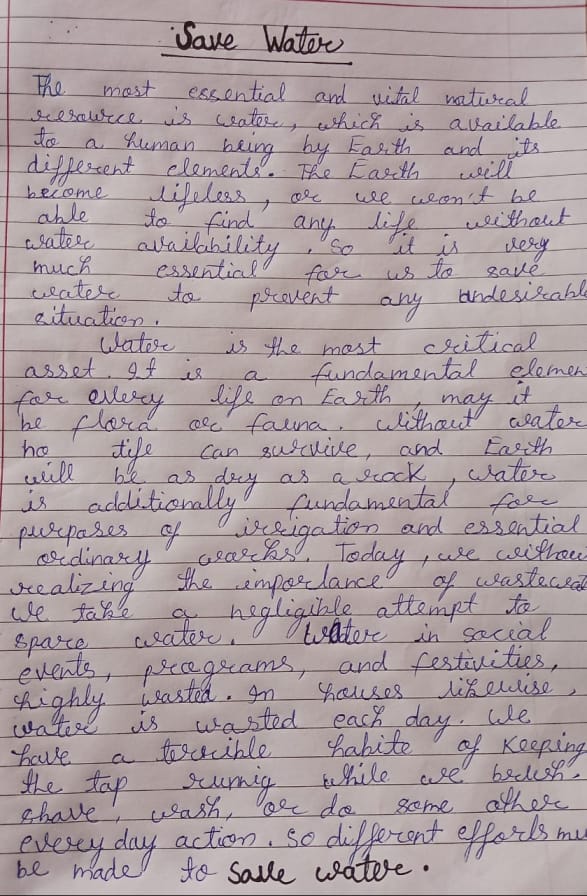 Save Water
The most essential and vital natural
resource is water, which is available
to a human being by Earth and its
different elements. The Earth will
become lifeless, or we won't be
able to find any life without
water availability. So it is very
much essential for us to save
water to prevent any undesirabl
situation.
Water is the most critical
asset. It is a fundamental elemen
for every life on Earth, may it
be flora or fauna. Without water
no life can survive, and Earth
will be as dry as a rock, water
is additionally fundamental for
purpases of irrigation and essential
ordinary works. Today, we withou
realizing the importance of wastewat
We take a negligible attempt to
spare water. Water in social
events, programs, and festivities,
highly wasted. In houses likewise,
water is wasted each day. We
have a terrible habite of Keeping
the tap runnig while we brush.
shave, wash, or do some other
every day action. So different efforts mu
be made to save water.